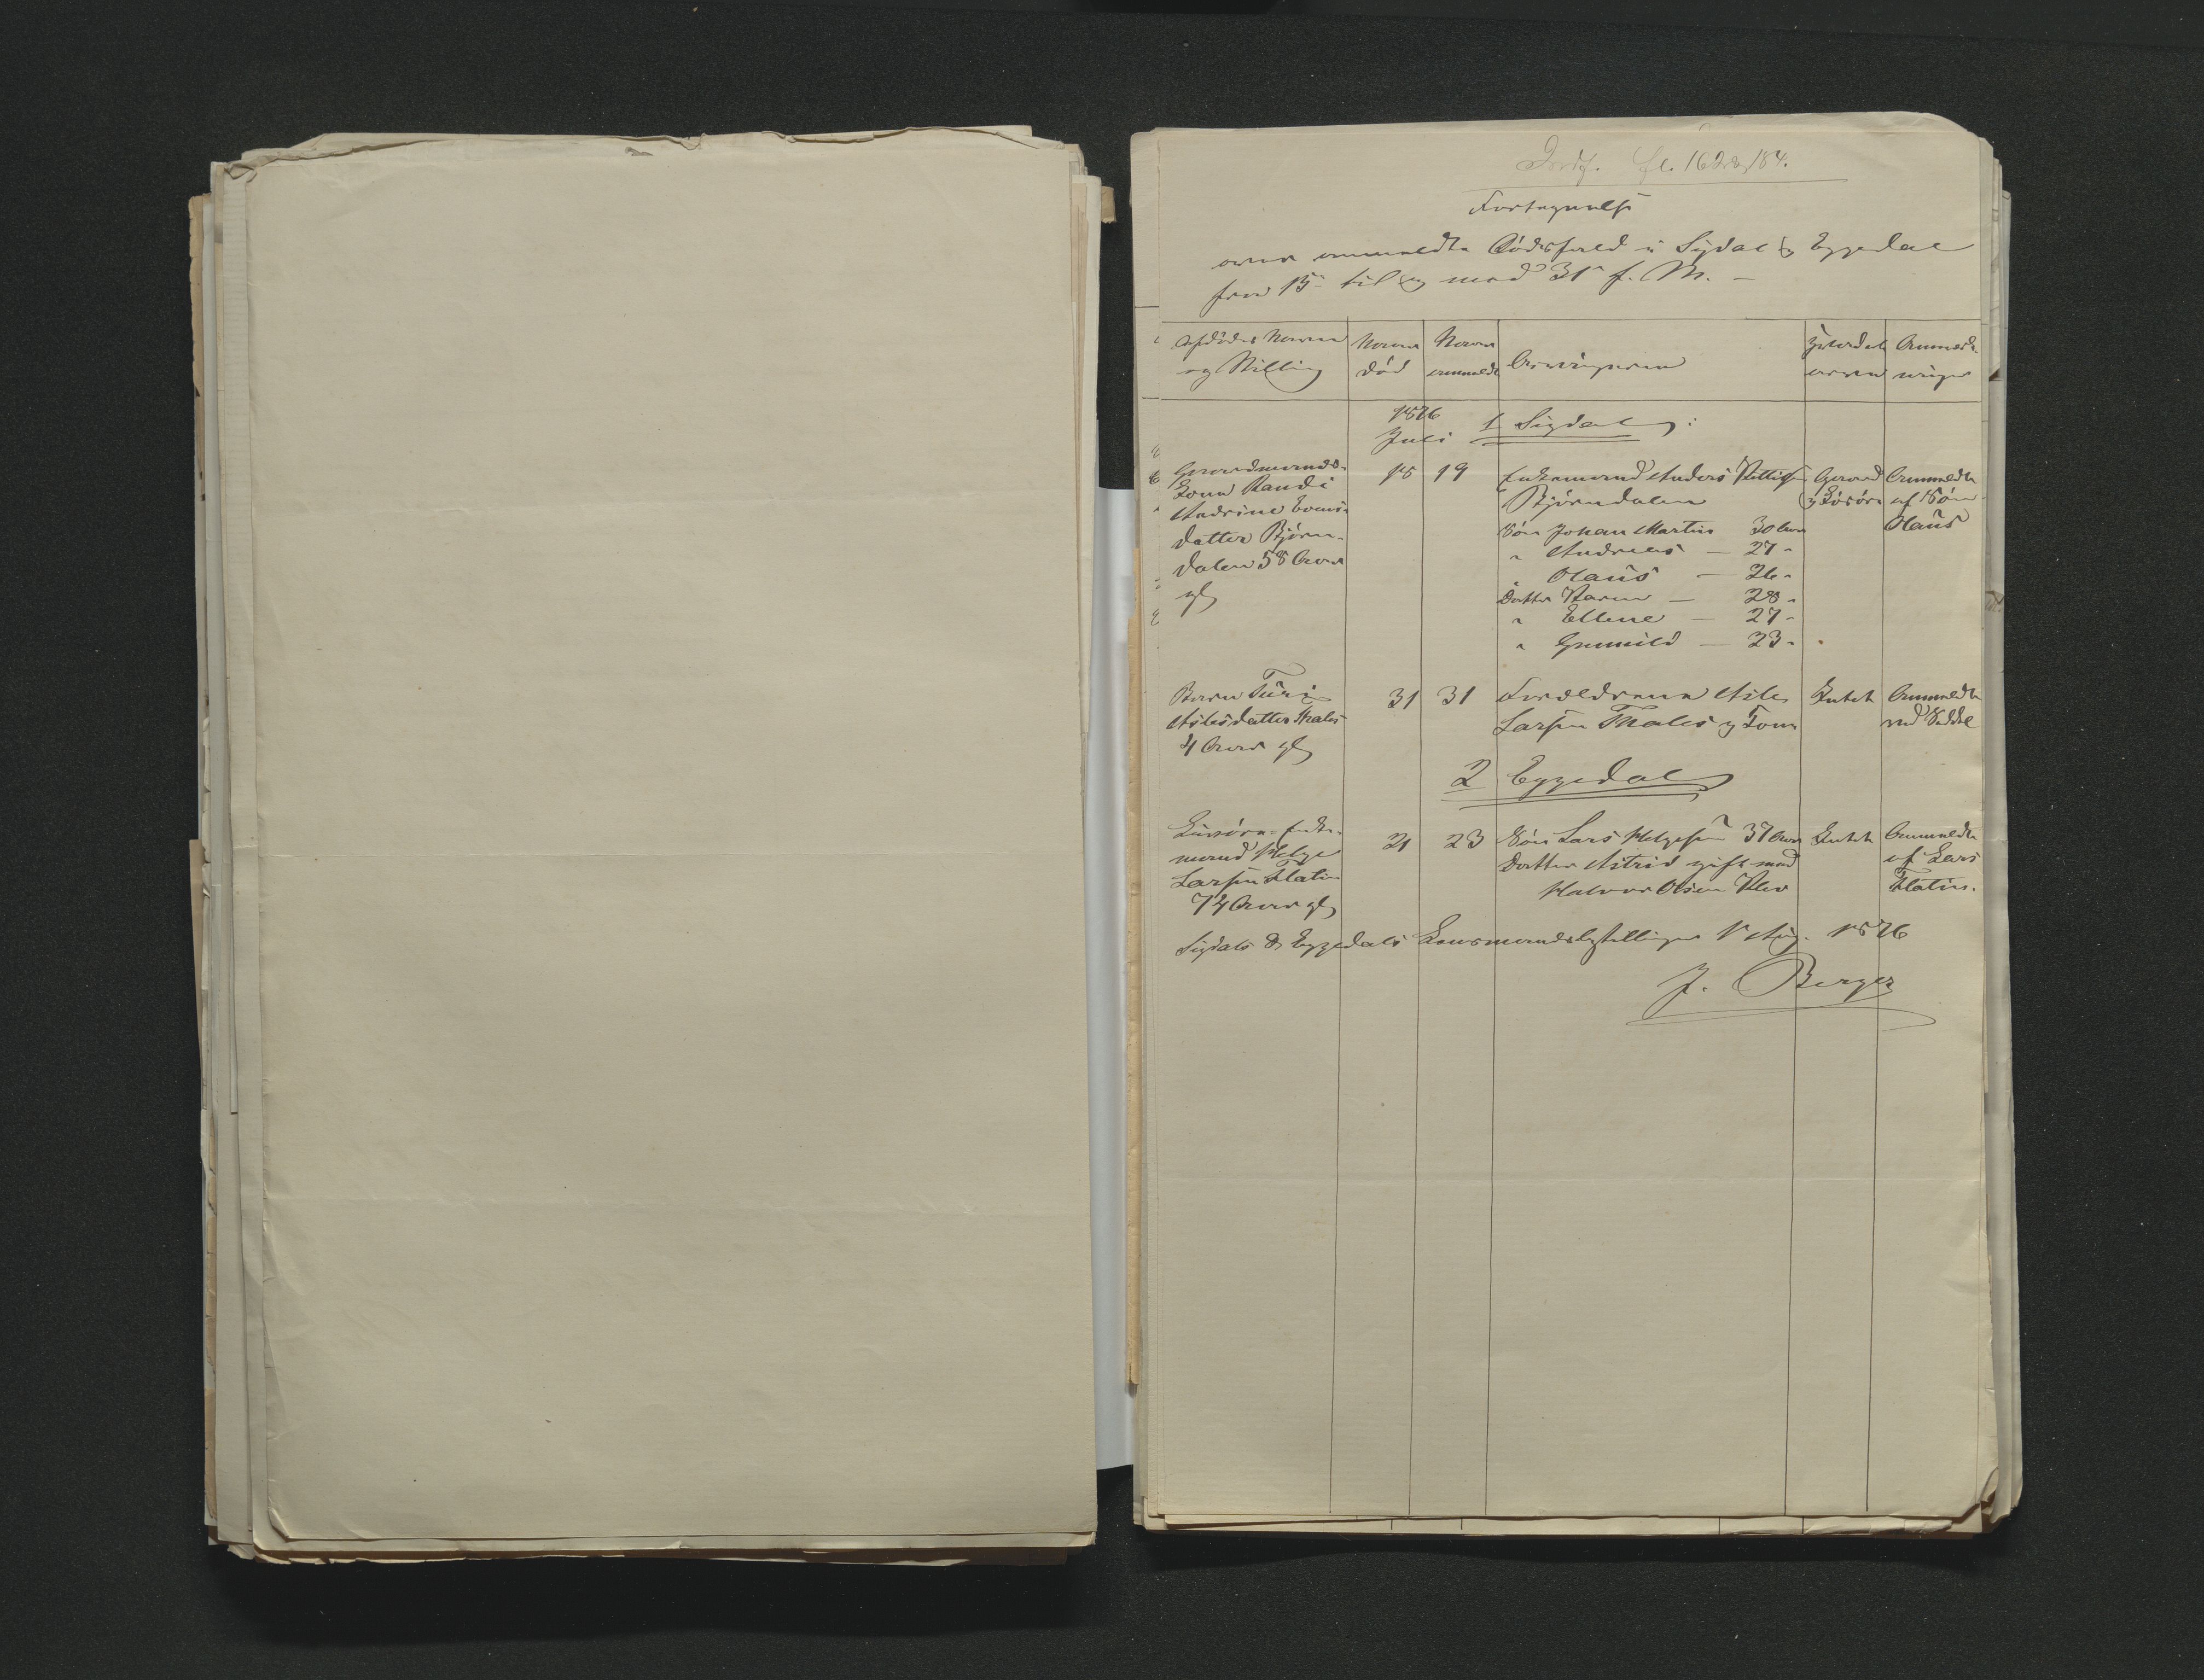 Fortegnelse
over anmeldte Dødsfald i Sigdal og Eggedal
fra 15 til og med 31 f. M. –
Afdødes Navn og Stilling | Naar død | Naar anmeldt | Arvingerne | Anmeldt
1876
Juli 1 Sigdal:
Gaardmands-
kone Randi
Andrine
datter Bjørn-
dalen 58 Aar
gl
18 19 Enkemand Anders Kittilsen
Bjørndalen
Søn Johan Martin 30 Aar
" Andreas — 27 "
" Olaus — 26 "
Datter Karen — 28 "
" Ellene — 27 "
" Gunnild — 23 "
Gaard
og Løsøre
Anmeldt
af Søn
Olaus
Barn Turi
Aslesdatter Thales
4 Aar gl
31 31 Forældrene Asle
Larsen Thales og Kone
Intet
Anmeldt
ved Seddel
2 Eggedal
Enke-
mand Helge
Larsen Flatin
74 Aar gl
21 23 Søn Lars Helgesen 37 Aar
Datter Astrid gift med
Halvor Olsen
Intet
Anmeldt
af Lars
Flatin.
Sigdals & Eggedals Lensmandsbestilling 1 Aug. 1876
J. Berger